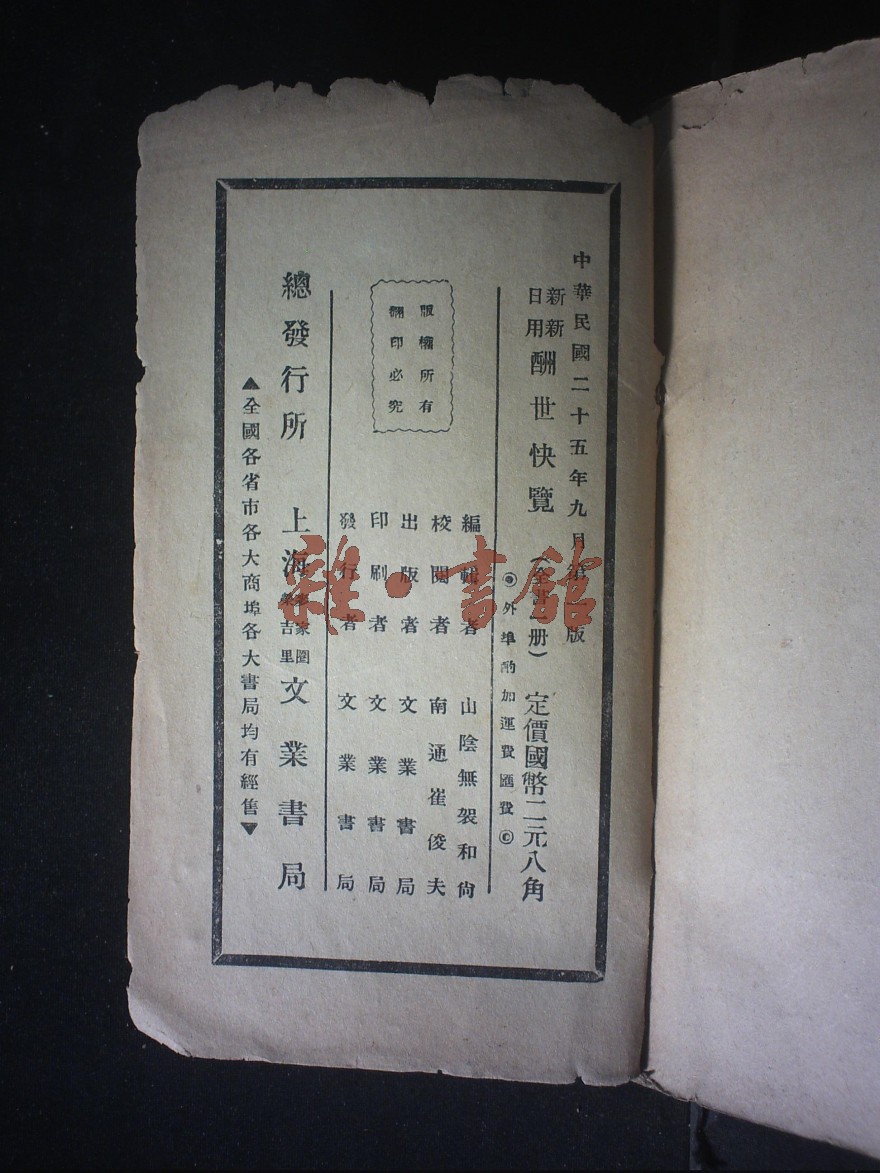 中華民國二十五年九月第一版
新新
日用
酬世快覽(全書一册)定價國幣二元八角
外埠酌加運費匯費
編輯者 山陰無袈和尙
校閱者 南通崔俊夫
出版者 文業書局
印刷者 文業書局
發行者 文業書局
版權所有
翻印必究
總發行所 上海
家圈
吉里
文業書局
▲全國各省市各大商埠各大書局均有經售▼
雜·書館